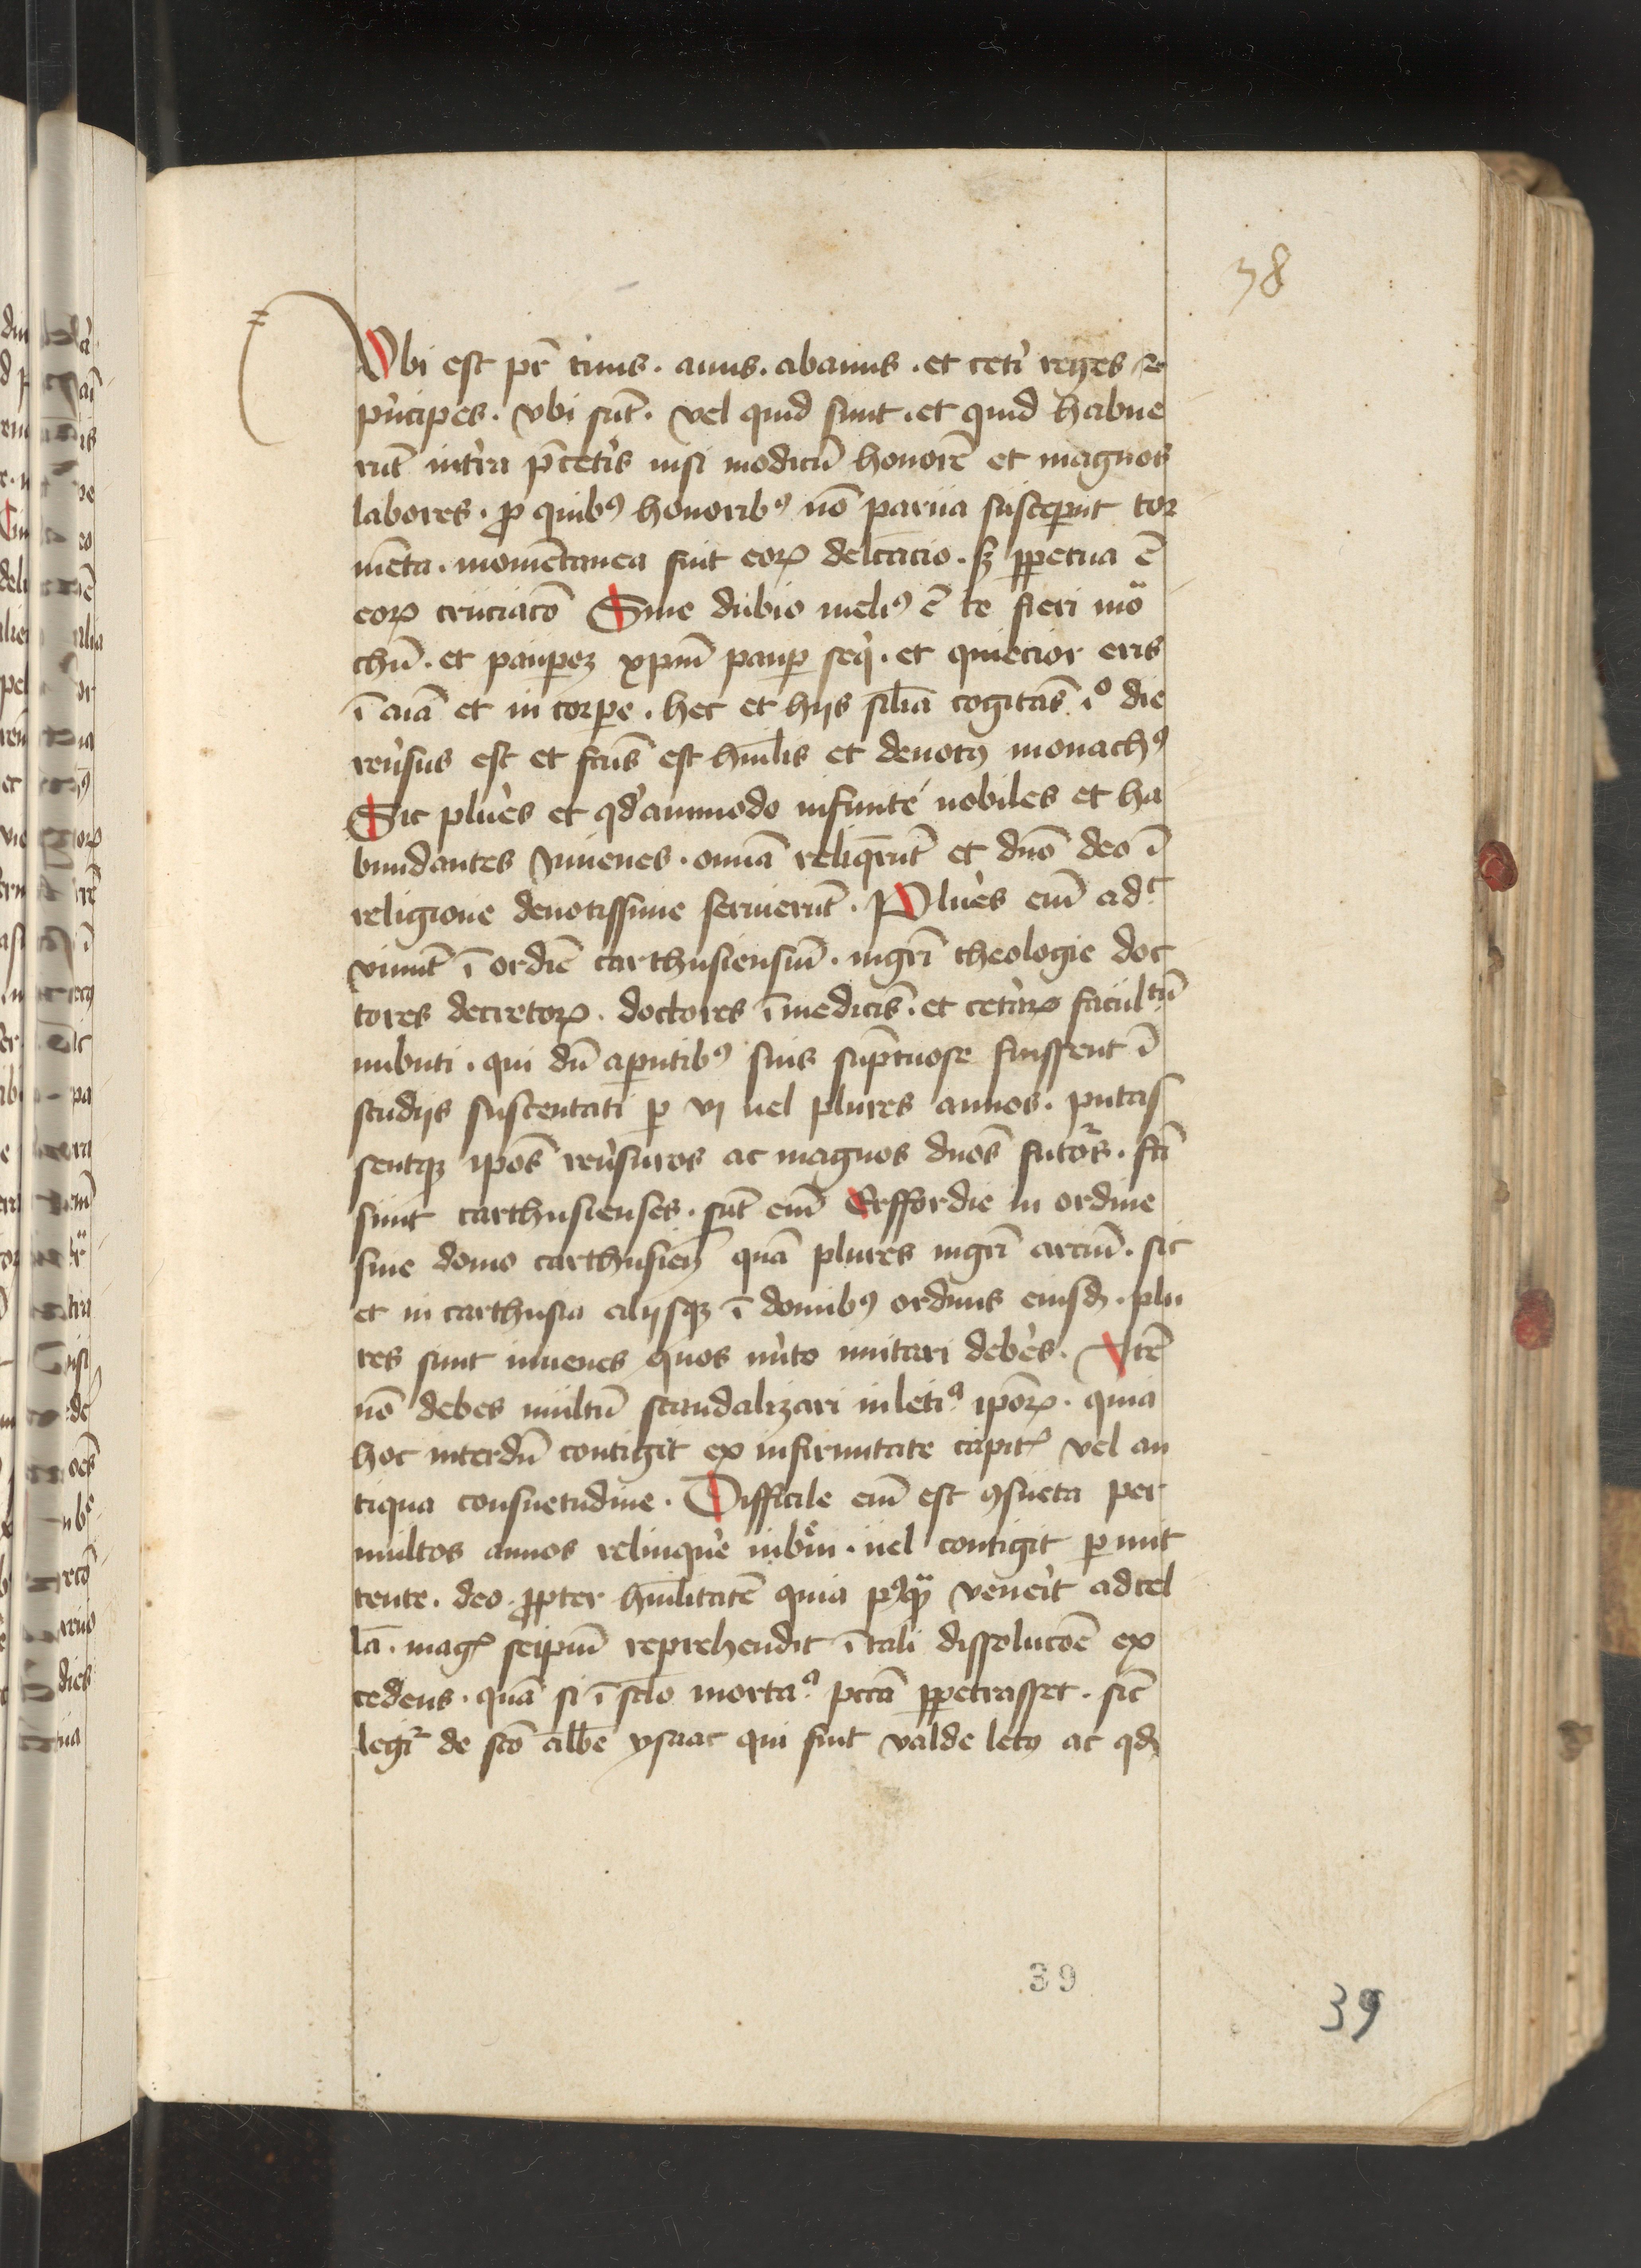 38
Vbi est pr̄ tuus · auus · abauus · et cet̉i reges ⁊
pn̉cipes · vbi sūt · vel quid sunt · et quid habue
rūt int̉ra p̄cet̉is nisi modicū honorē et magnos
labores · ꝓ quibꝰ honoribꝰ nō parua susceperūt tor
mēta · momētanea fuit eoꝝ delc̄acio · sꝫ ꝑpetua ē
eoꝝ cruciatō Sine dubio meliꝰ ē te fieri moͣ
chū · et pauperꝫ xp̄m paup̲ seq̉ · et quiecior eris
ī aīa et in corꝑe · hec et hijs sīlia cogitās ꝫº die
reủsus est et fc̄us est hūilis et deuotꝰ monachꝰ
Sic plủes et qd̉ammodo infinite nobiles et ha
bundantes iuuenes · om̄ia reliq̄rūt et dn̄o deo ī
religione deuotissime seruierūt · Plủes em̄ adᶜ
viuūt ī ordīe carthusiensiū · mgr̄i theologie doc
tores decretoꝝ · doctores ī medicīs · et cet̉aꝝ facultᵗū
imbuti · qui dū a ꝑentibꝰ suis sūptuose fuissent ī
studijs sustentati ꝑ vj uel plures annos · putas
sentqꝫ ip̄os reủsuros ac magnos dn̄os futōs · fc̄i
sunt carthusienses · sūt em̄ Erffordie in ordine
siue domo carthusieñ quā plures mgr̄i arciū · sic
et in carthusia alijsqꝫ ī domibꝰ ordinis eiusdꝫ · plu
res sunt iuuenes quos mỉto imitari debe̓s · Itē
nō debes multū scandalizari in letiᵃ ip̄oꝝ · quia
hoc interdū contigit ex infirmitate capitꝭ vel an
tiqua consuetudine · Difficile em̄ est ꝯsueta per
multos annos relinque̓ · uel contigit ꝑmit
tente · deo · ꝓpter hūilitatē quia pꝰqͣꝫ vene̓it ad cel
lā · magꝭ seip̄m reprehendit ī tali dissolucōe ex
cedens · quā si ī sclo mortaᵃ pctā ꝑpetrasset · sic̄
legit̉ de sc̄o abbē ysaac qui fuit valde letꝰ ac qd̉
39
39